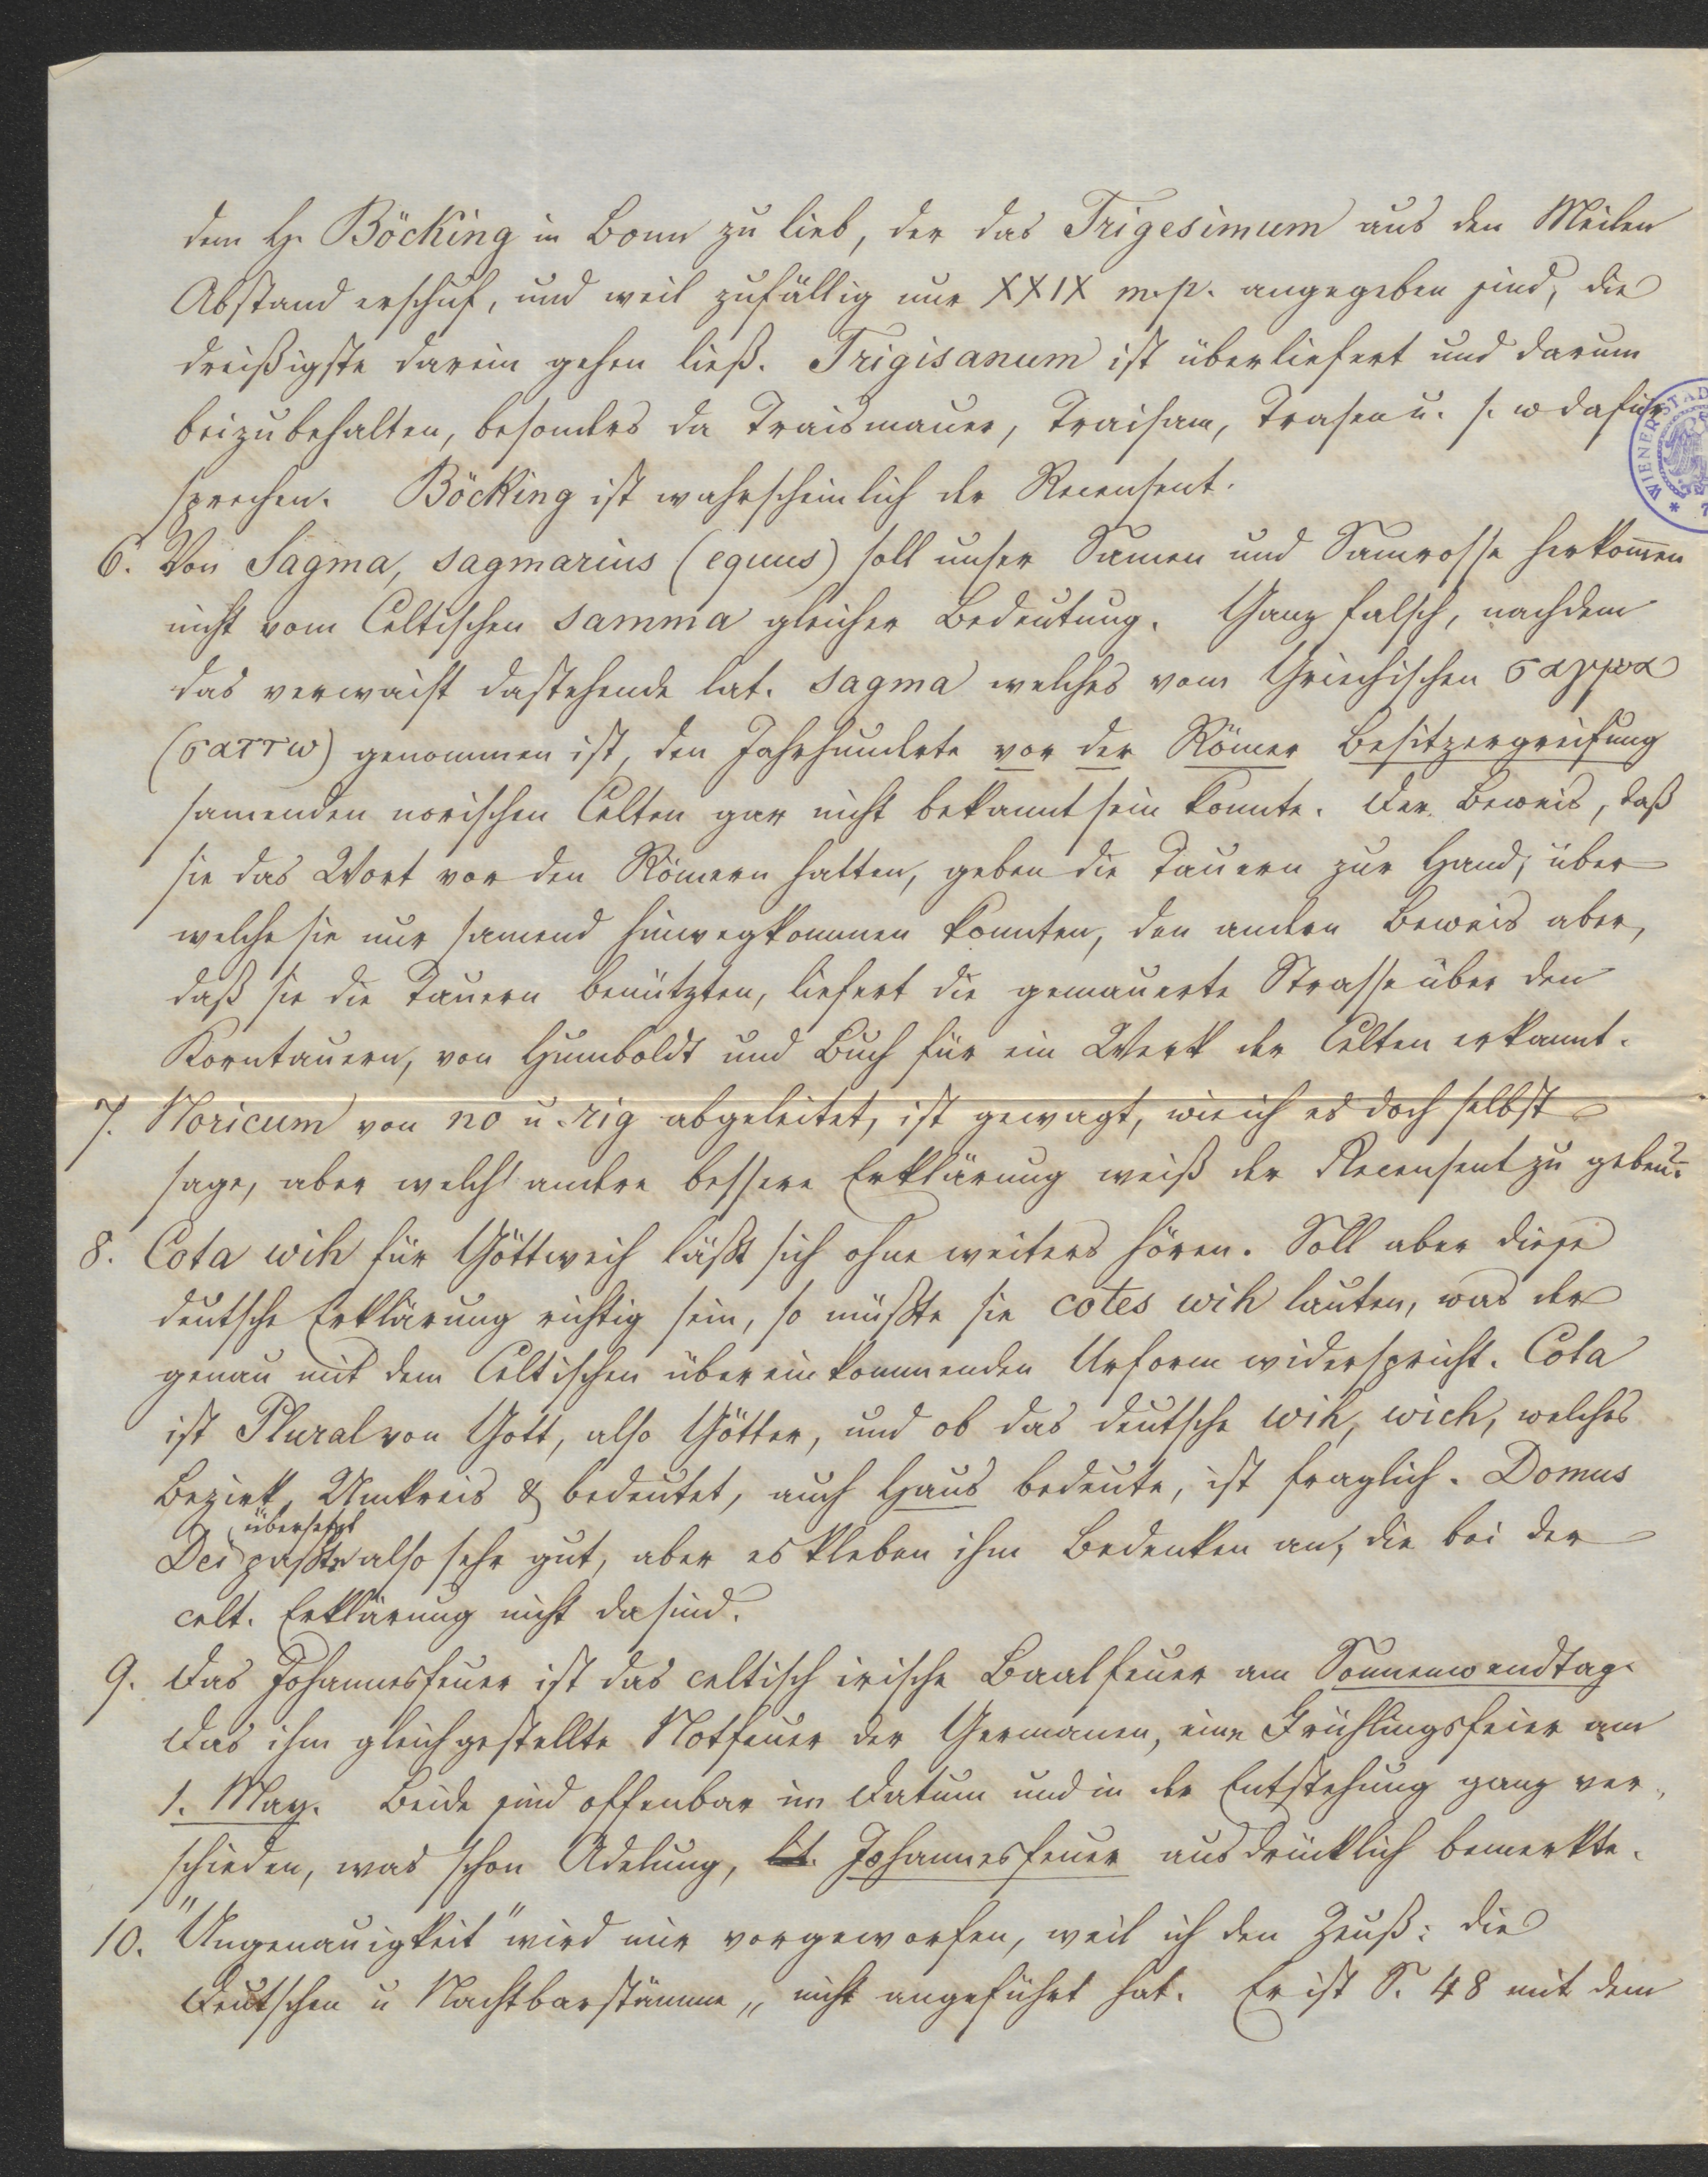 dem H. Böcking in Bonn zu lieb, der das Trigesimum aus den Meilen
Abstand erschuf, und weil zufällig nur XXIX m.p. angegeben sind, die
dreißigste darein gehen ließ. Trigisanum ist überliefert und darum
beizubehalten, besonders da Traismauer, Traisam, Trasen u. s. w dafür
sprechen. Böcking ist wahrscheinlich der Recensent.
6. Von Sagma, sagmarius (equus) soll unser Samen und Samrosse herkom̄en
nicht vom Celtischen samma gleicher Bedeutung. Ganz falsch, nachdem
das verwaist dastehende lat. sagma welches vom Griechischen σαγμα
(σαττω) genommen ist, den Jahrhunderte vor der Römer Besitzergreifung
samenden norischen Celten gar nicht bekannt sein konnte. Der Beweis, daß
sie das Wort vor den Römern hatten, geben die Tauern zur Hand, über
welche sie nur samend hinwegkommen konnten, den andern Beweis aber,
daß sie die Tauern benützten, liefert die gemauerte Strasse über den
Korntauern, von Humboldt und Buch für ein Werk der Celten erkannt.
7. Noricum von no u. rig abgeleitet, ist gewagt, wie ich es doch selbst
sage, aber welch' andere bessere Erklärung weiß der Recensent zu geben?
8. Cota wih für Göttweih läßt sich ohne weiters hören. Soll aber diese
deutsche Erklärung richtig sein, so müßte sie cotes wih lauten, was der
genau mit dem Celtischen übereinkommenden Urform widerspricht. Cota
ist Plural von Gott, also Götter, und ob das deutsche wih, wich, welches
Bezirk, Umkreis & bedeutet, auch Haus bedeute, ist fraglich. Domus
übersetzt
Dei paßte also sehr gut, aber es kleben ihm Bedenken an, die bei der
celt. Erklärung nicht da sind.
9. Das Johannesfeuer ist das celtisch irische Baalfeuer am Sonnenwendtag.
Das ihm gleichgestellte Notfeuer der Germanen, eine Frühlingsfeier am
1. May. Beide sind offenbar im Datum und in der Entstehung ganz ver-
schieden, was schon Adelung, lit. Johannesfeuer ausdrücklich bemerkte.
10. "Ungenauigkeit" wird mir vorgeworfen, weil ich den Zeuß: die
Deutschen u Nachtbarstämme „ nicht angeführt hat. Er ist S. 48 mit dem
WIENER STAD